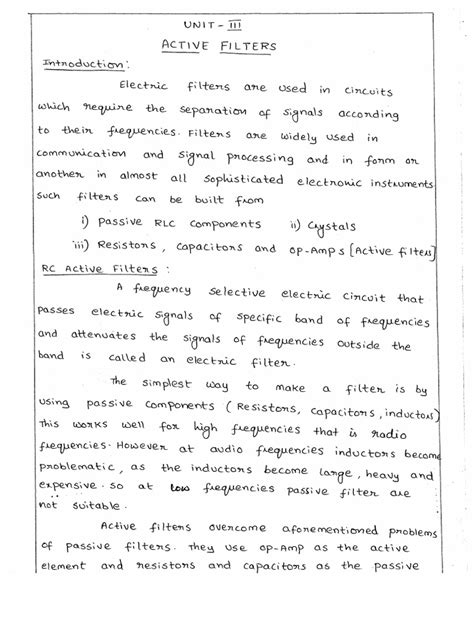 UNIT - III
ACTIVE FILTERS
Introduction:
Electric filters are used in circuits
which require the separation of signals according
to their frequencies. Filters are widely used in
communication and signal processing and in form or
another in almost all sophisticated electronic instruments
such filters can be built from
i) Passive RLC components ii) Crystals
iii) Resistors, capacitors and op-Amps [Active filters]
RC Active Filters :
A frequency selective electric circuit that
passes electric signals of specific band of frequencies
and attenuates the signals of frequencies outside the
band is called an electric filter.
The simplest way to make a filter is by
using passive components (Resistors, capacitors, inductors)
This works well for high frequencies that is radio
frequencies. However at audio frequencies inductors become
problematic, as the inductors become large, heavy and
expensive. so at low frequencies passive filter are
not suitable.
Active filters overcome aforementioned problems
of passive filters. They use op-Amp as the active
element and resistors and capacitors as the passive